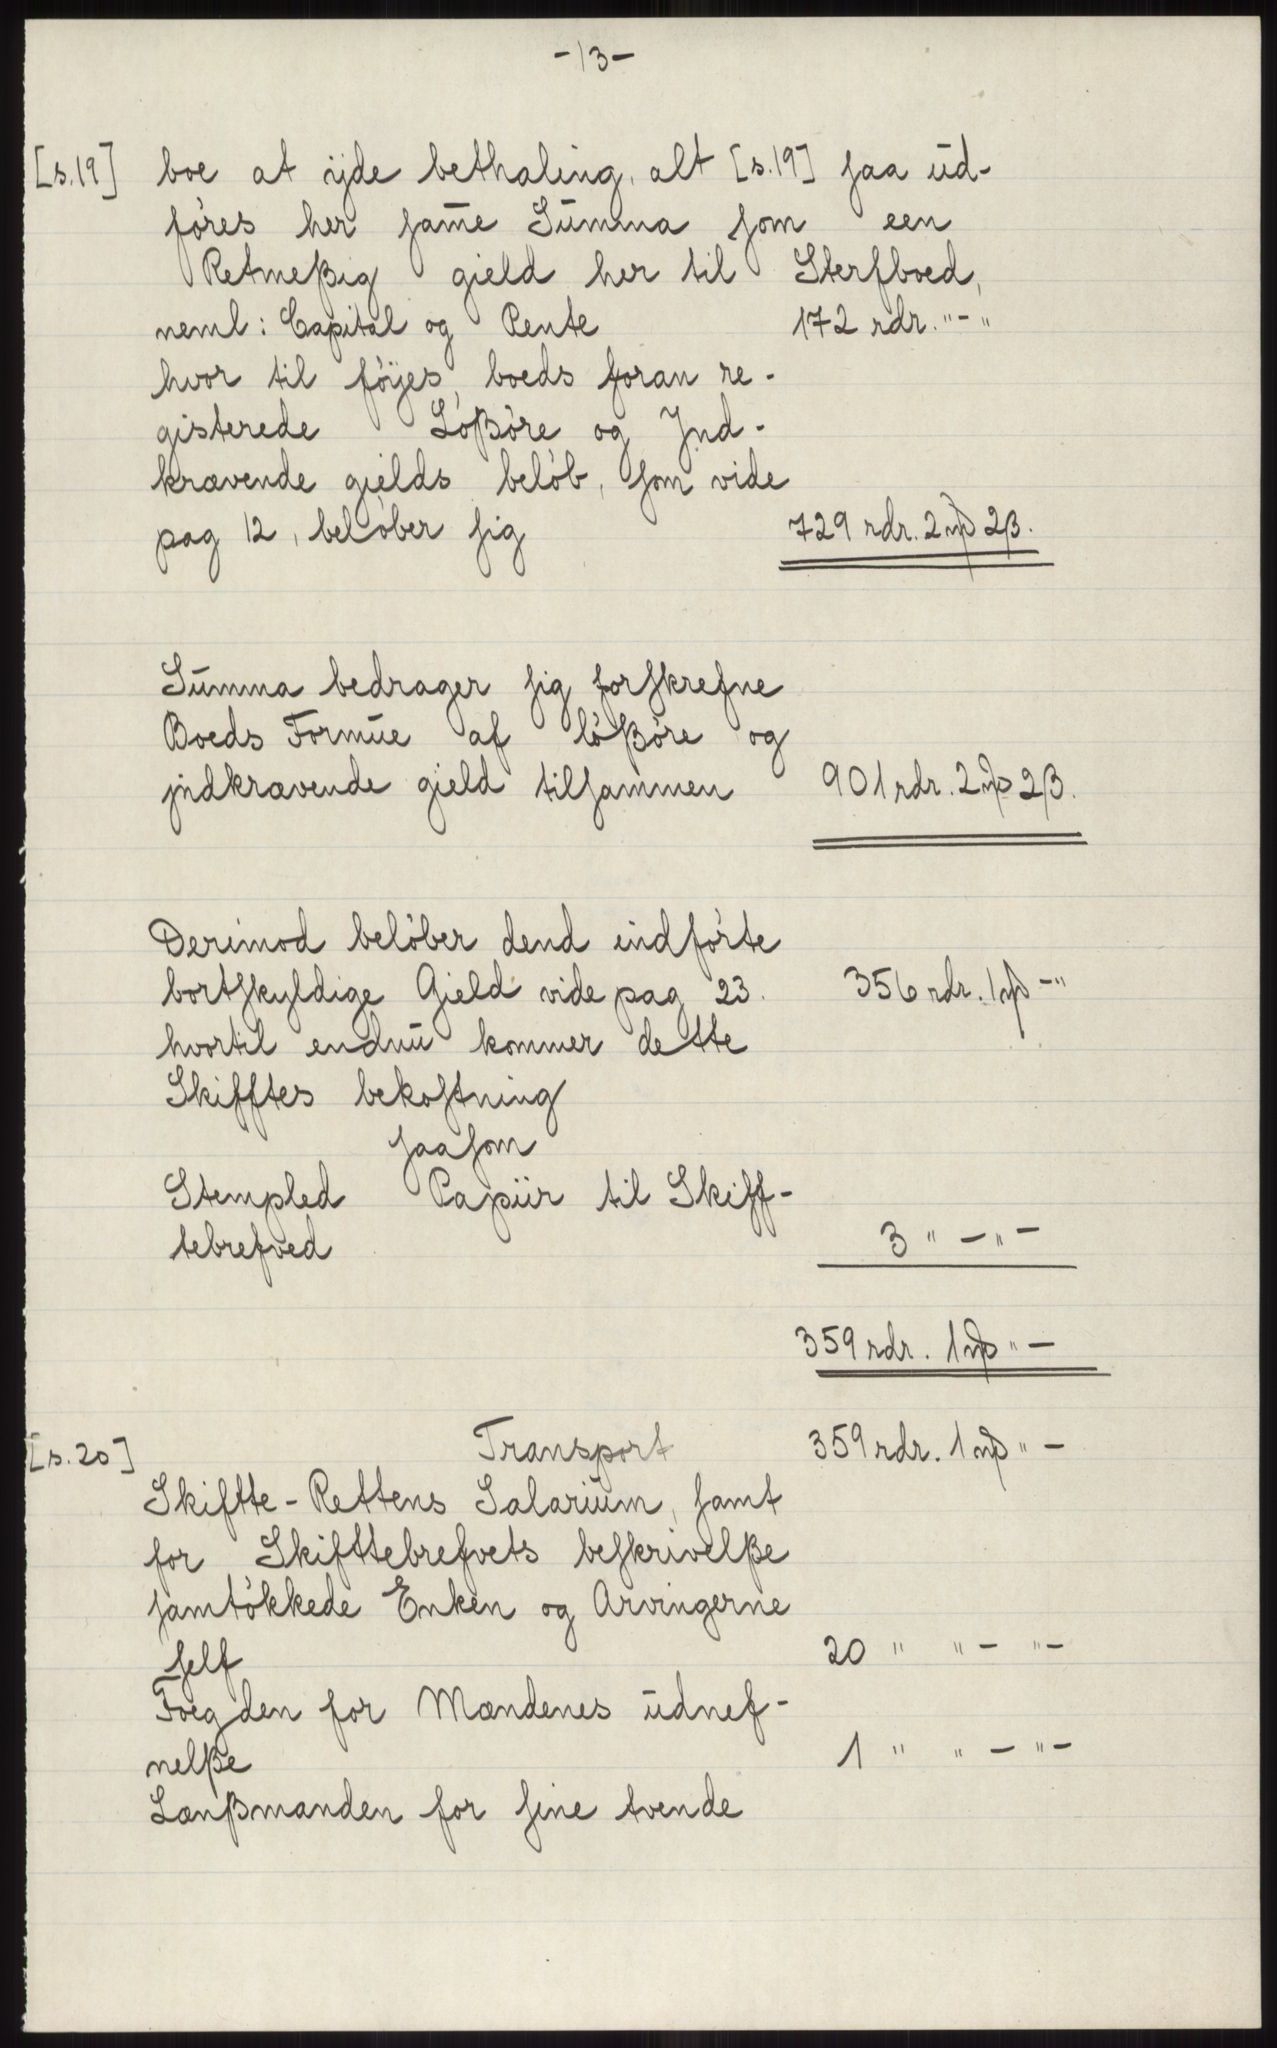 -13-
[s.19] boe at ijde bethaling, alt [s.19] saa ud-
föres her same Summa som een
Retmeßig gield her til Sterfboed,
neml: Capital og Rente 172 rdr. "-"
hvor til föyes, boeds foran re-
gisterede Lößöre og Jnd-
krævende gields belöb, som vide
pag 12, belöber sig 729 rdr. 2 mƿ 2ß.
Summa bedrager sig forskrefne
Boeds Formue af lößöre og
jndkrævende gield tilsammen 901 rdr. 2 mƿ 2ß.
Derimod belöber dend indförte
bortskyldige Gield vide pag 23. 356 rdr. 1 mƿ -"
hvortil endnu kommer dette
Skifftes bekostning
saasom
Stempled Papiir til Skiff-
tebrefved 3 " - " -
359 rdr. 1 mƿ " -
[s.20] Transport 359 rdr. 1 mƿ " -
Skiftte-Rettens Salarium, samt
for Skifttebrefvets beskrivelße
samtökkede Enken og Arvingerne
self 20 " " - " -
Foegden for Mændenes udnef-
nelße 1 " " - " -
Lænßmanden for sine tvende